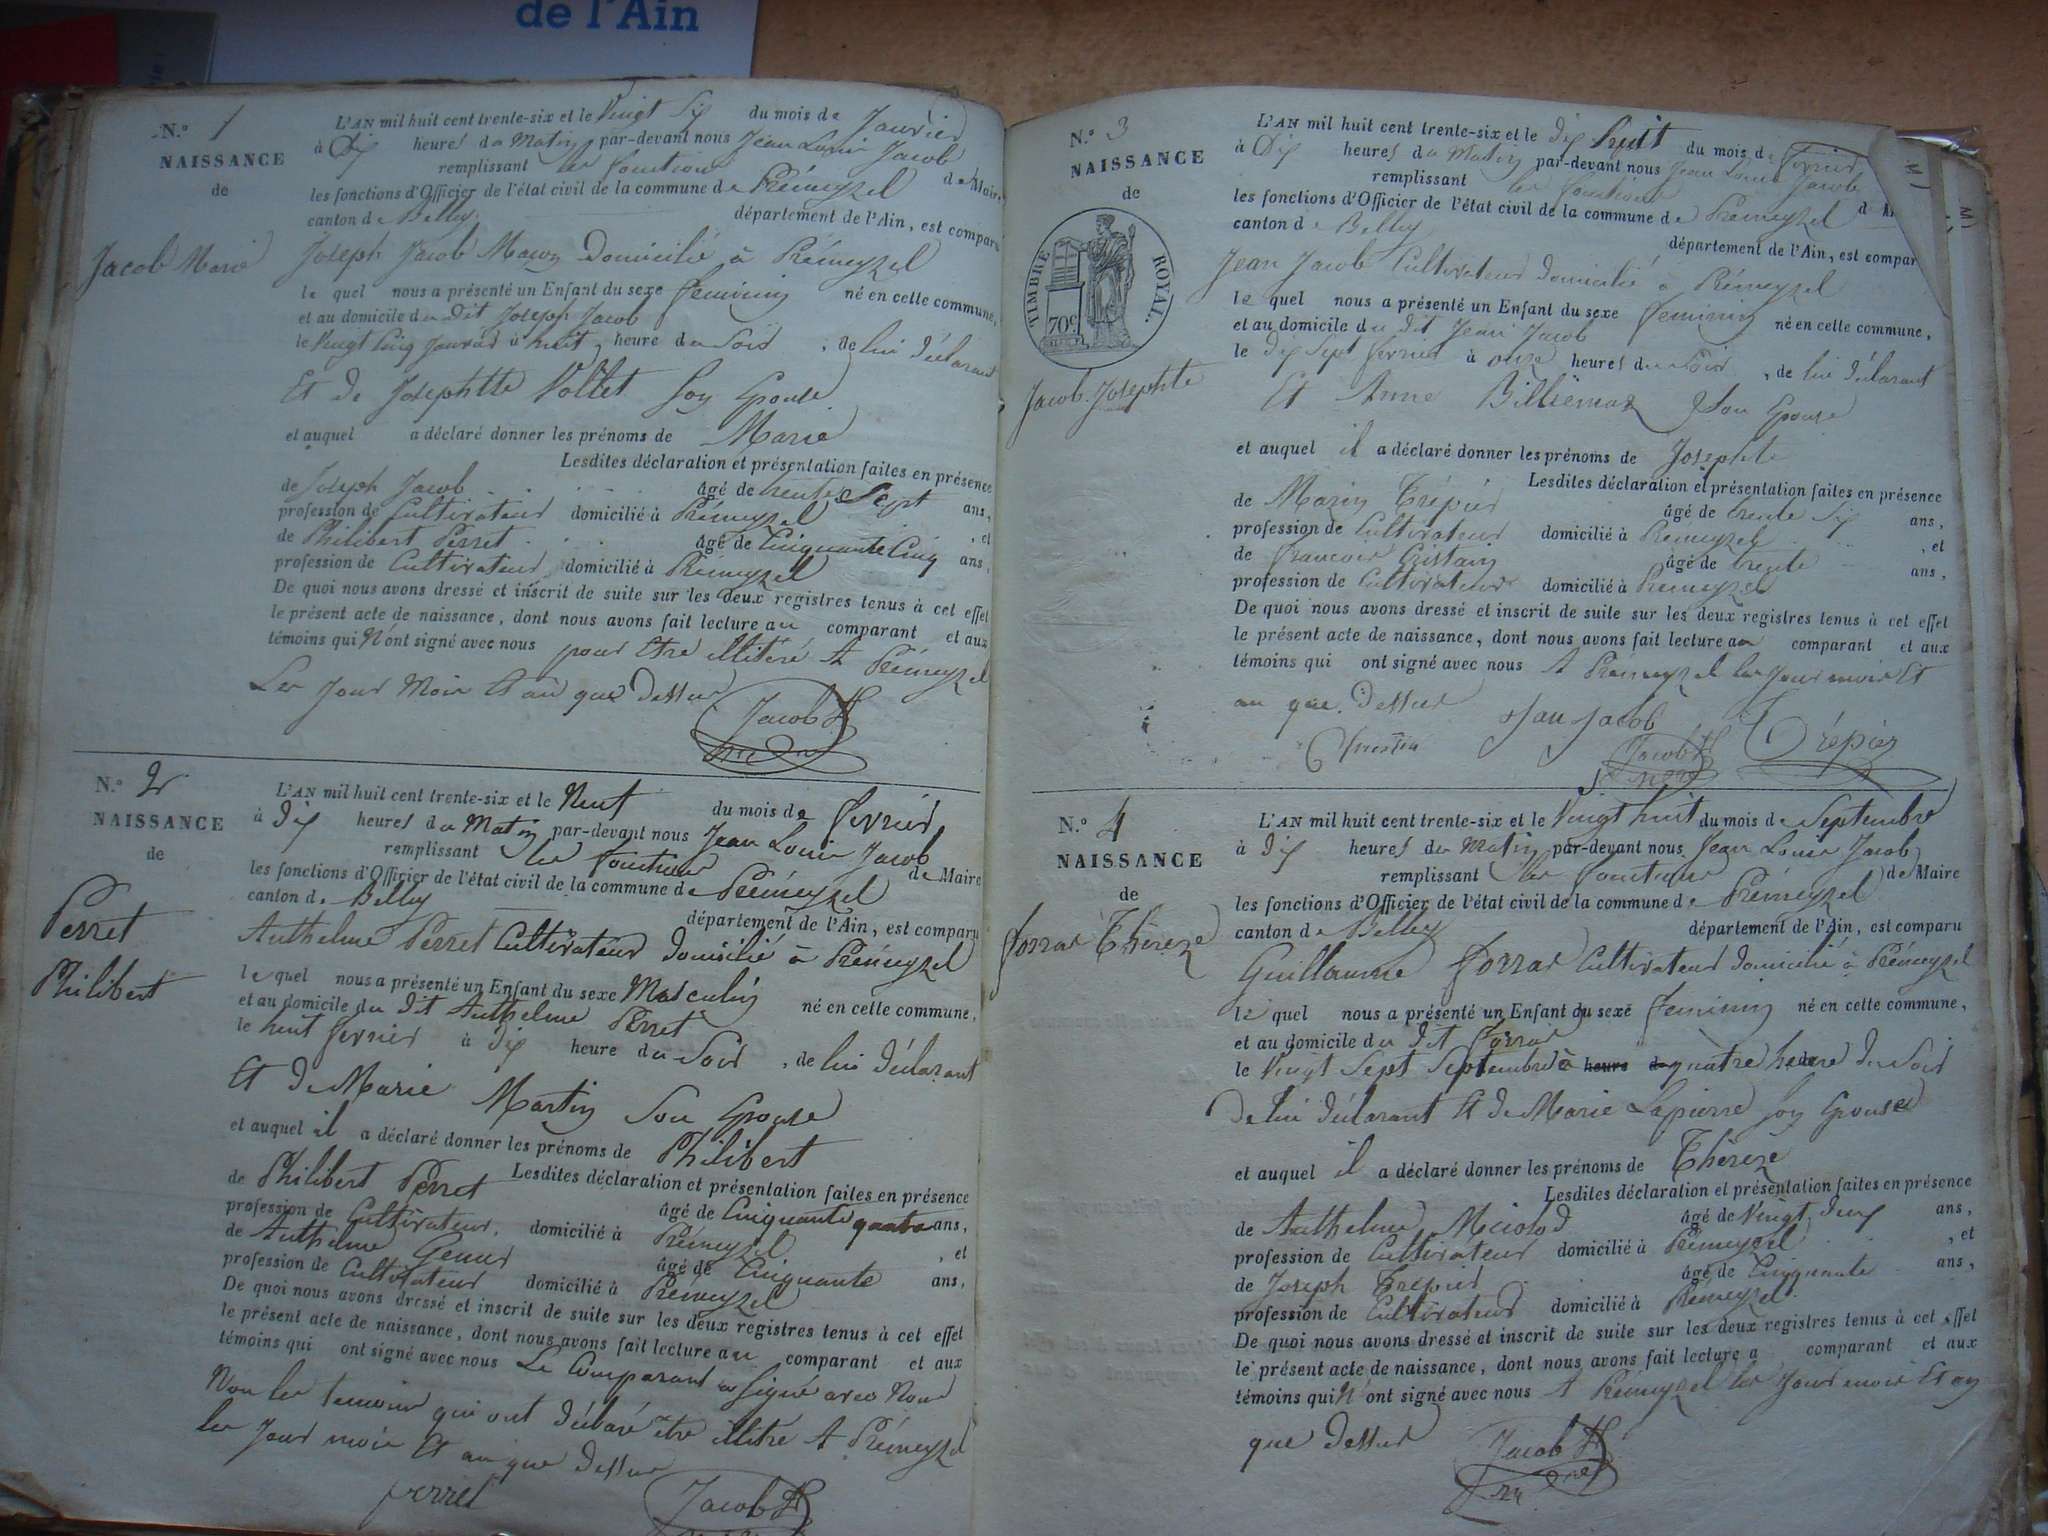 de l'Ain
N.° 1
NAISSANCE
de
Jacob Marie
L'AN mil huit cent trente-six et le Vingt Six du mois de Janvier
à Dix heures du Matin par-devant nous Jean Louis Jacob
remplissant les fonctions de Maire,
les fonctions d'Officier de l'état civil de la commune de Prémeyzel
canton de Belley département de l'Ain, est comparu
Joseph Jacob Maçon Domicilié à Prémeyzel
le quel nous a présenté un Enfant du sexe feminin né en cette commune,
et au domicile du dit Joseph Jacob
le Vingt Cinq Janvier à huit heure du Soir , de lui déclarant
Et de Josephtte Vollet Son Epouse
et auquel a déclaré donner les prénoms de Marie
Lesdites déclaration et présentation faites en présence
de Joseph Jacob âgé de trente Sept ans,
profession de Cultivateur domicilié à Prémeyzel , et
de Philibert Perret âgé de Cinquante Cinq ans,
profession de Cultivateur domicilié à Prémeyzel
De quoi nous avons dressé et inscrit de suite sur les deux registres tenus à cet effet
le présent acte de naissance, dont nous avons fait lecture au comparant et aux
témoins qui N'ont signé avec nous pour Etre illitéré A Prémeyzel
Les Jour Mois Et an que Dessus
Jacob
N.° 2
NAISSANCE
de
Perret
Philibert
L'AN mil huit cent trente-six et le Neuf du mois de fevrier
à Dix heures du Matin par-devant nous Jean Louis Jacob
remplissant les fonctions de Maire
les fonctions d'Officier de l'état civil de la commune de Prémeyzel
canton de Belley département de l'Ain, est comparu
Anthelme Perret Cultivateur Domicilié à Prémeyzel
le quel nous a présenté un Enfant du sexe Masculin né en cette commune,
et au domicile du dit Anthelme Perret
le huit fevrier à dix heure du Soir , de lui déclarant
Et de Marie Martin Son Epouse
et auquel il a déclaré donner les prénoms de Philibert
Lesdites déclaration et présentation faites en présence
de Philibert Perret âgé de Cinquante quatre ans,
profession de Cultivateur, domicilié à Prémeyzel , et
de Anthelme âgé de Cinquante ans,
profession de Cultivateur domicilié à Prémeyzel
De quoi nous avons dressé et inscrit de suite sur les deux registres tenus à cet effet
le présent acte de naissance, dont nous avons fait lecture au comparant et aux
témoins qui ont signé avec nous Le Comparant a Signé avec Nous
Non les temoins qui ont déclaré etre illitré A Prémeyzel
les Jour mois Et an que Dessus
perret
Jacob
N.° 3
NAISSANCE
de
TIMBRE ROYAL.
70c
Jacob Josephte
L'AN mil huit cent trente-six et le dix huit du mois de fevrier
à Dix heures du Matin par-devant nous Jean Louis Jacob
remplissant les fonctions
les fonctions d'Officier de l'état civil de la commune de Prémeyzel
canton de Belley département de l'Ain, est compar
Jean Jacob Cultivateur domicilié à Prémeyzel
le quel nous a présenté un Enfant du sexe feminin né en cette commune,
et au domicile du dit Jean Jacob
le dix Sept fevrier à onze heures du Soir , de lui déclarant
Et Anne Billiemaz Son Epouse
et auquel il a déclaré donner les prénoms de Josephte
Lesdites déclaration et présentation faites en présence
de Marin Trépier âgé de trente Six ans,
profession de Cultivateur domicilié à Prémeyzel , et
de francois Cristain âgé de trente ans,
profession de Cultivateur domicilié à Prémeyzel
De quoi nous avons dressé et inscrit de suite sur les deux registres tenus à cet effet
le présent acte de naissance, dont nous avons fait lecture au comparant et aux
témoins qui ont signé avec nous A Prémeyzel les Jour mois Et
an que Dessus
Jacob
Trépier
Jacob
N.° 4
NAISSANCE
de
forrat Thérèze
L'AN mil huit cent trente-six et le Vingt huit du mois de Septembre
à dix heures du Matin par-devant nous Jean Louis Jacob
remplissant les fonctions de Maire
les fonctions d'Officier de l'état civil de la commune de Prémeyzel
canton de Belley département de l'Ain, est comparu
Guillaume forrat Cultivateur domicilié à Prémeyzel
le quel nous a présenté un Enfant du sexe feminin né en cette commune,
et au domicile du dit forrat
le Vingt Sept Septembre à heure du quatre heure du Soir
de lui déclarant Et de Marie Lapierre Son Epouse
et auquel il a déclaré donner les prénoms de Thérèze
Lesdites déclaration et présentation faites en présence
de Anthelme âgé de Vingt deux ans,
profession de Cultivateur domicilié à Prémeyzel , et
de Joseph Trepier âgé de Cinquante ans,
profession de Cultivateur domicilié à Prémeyzel
De quoi nous avons dressé et inscrit de suite sur les deux registres tenus à cet effet
le présent acte de naissance, dont nous avons fait lecture a comparant et aux
témoins qui N'ont signé avec nous A Prémeyzel les Jour mois Et an
que Dessus
Jacob